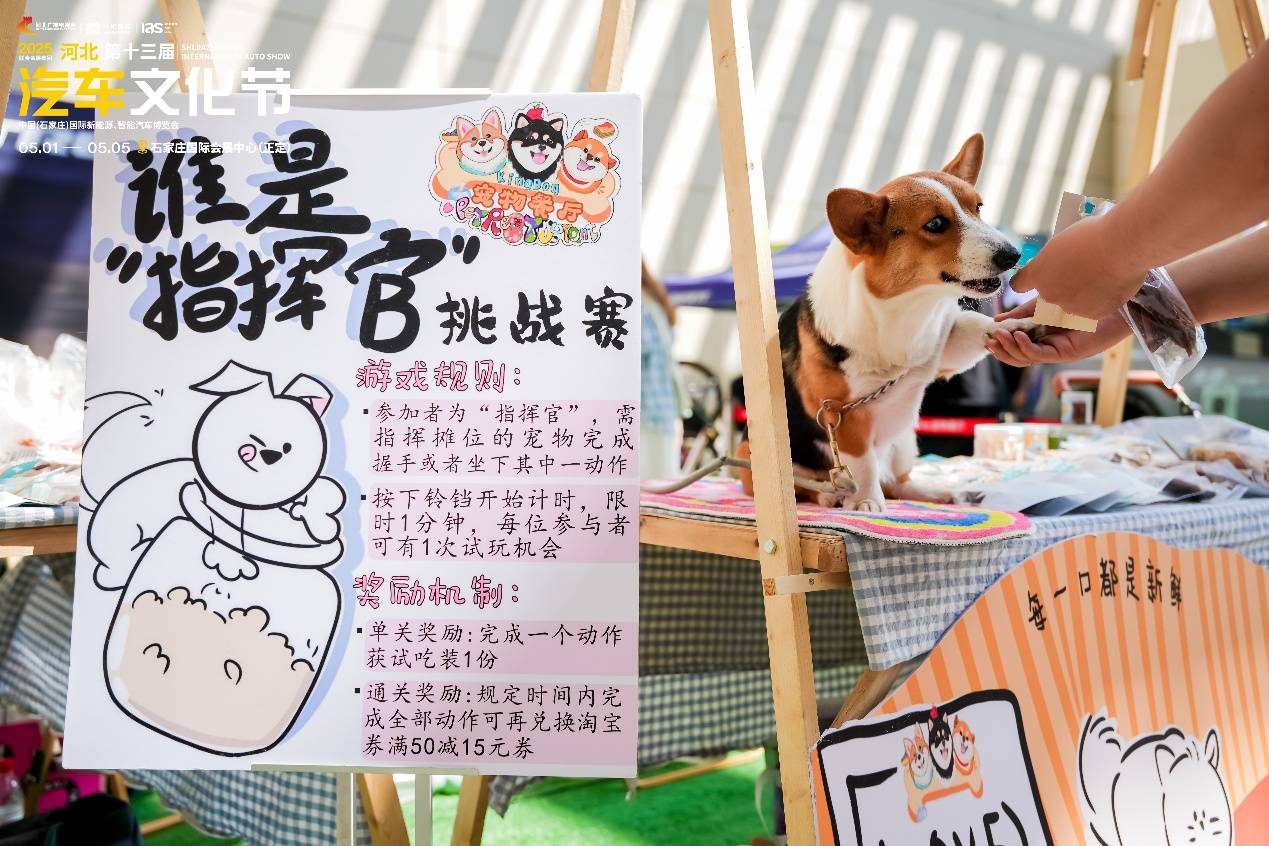 2025
河北
第十三届
SHIJIAZHUANG
INTERNATIONAL AUTO SHOW
汽车文化节
中国(石家庄)国际新能源、智能汽车博览会
05.01 — 05.05
石家庄国际会展中心(正定)
谁是
“指挥官”
挑战赛
KingDog
宠物餐厅
游戏规则:
参加者为“指挥官”,需
指挥摊位的宠物完成
握手或者坐下其中一动作
按下铃铛开始计时,限
时1分钟,每位参与者
可有1次试玩机会
奖励机制:
单关奖励:完成一个动作
获试吃装1份
通关奖励:规定时间内完
成全部动作可再兑换淘宝
券满50减15元券
每一口都是新鲜